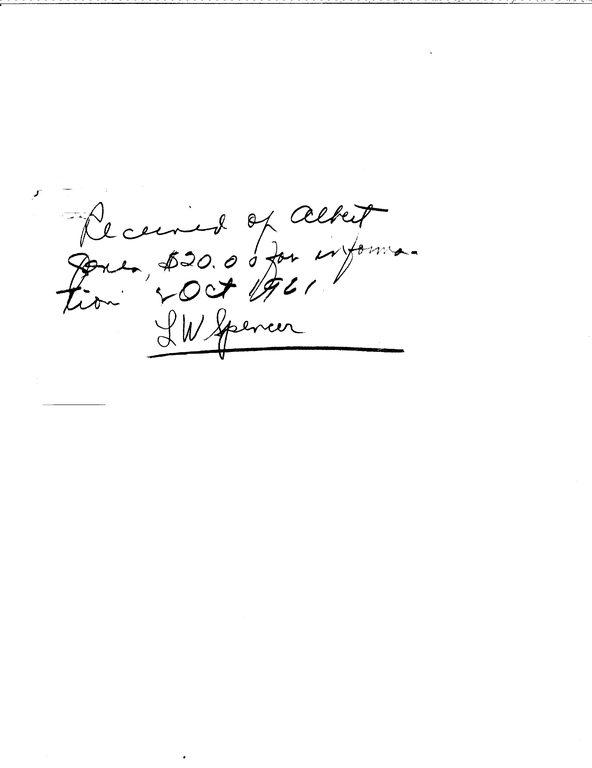 Received of Albert
Jones, $20.00 for informa-
tion 2 Oct 1961
LW Spencer